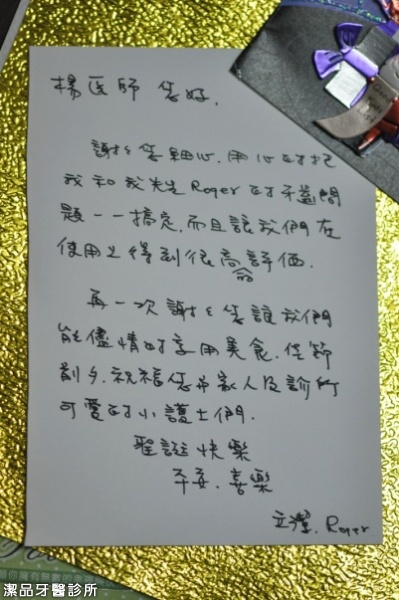 楊医師 您好,
謝謝您細心,用心的把
我和我先生Roger的牙齒問
題一一搞定,而且讓我們在
使用上得到很高的評價.
再一次謝謝您讓我們
能儘情的享用美食.佳節
前夕,祝福您和家人及診所
可愛的小護士們.
聖誕快樂
平安.喜樂
立瀅、Roger
潔品牙醫診所